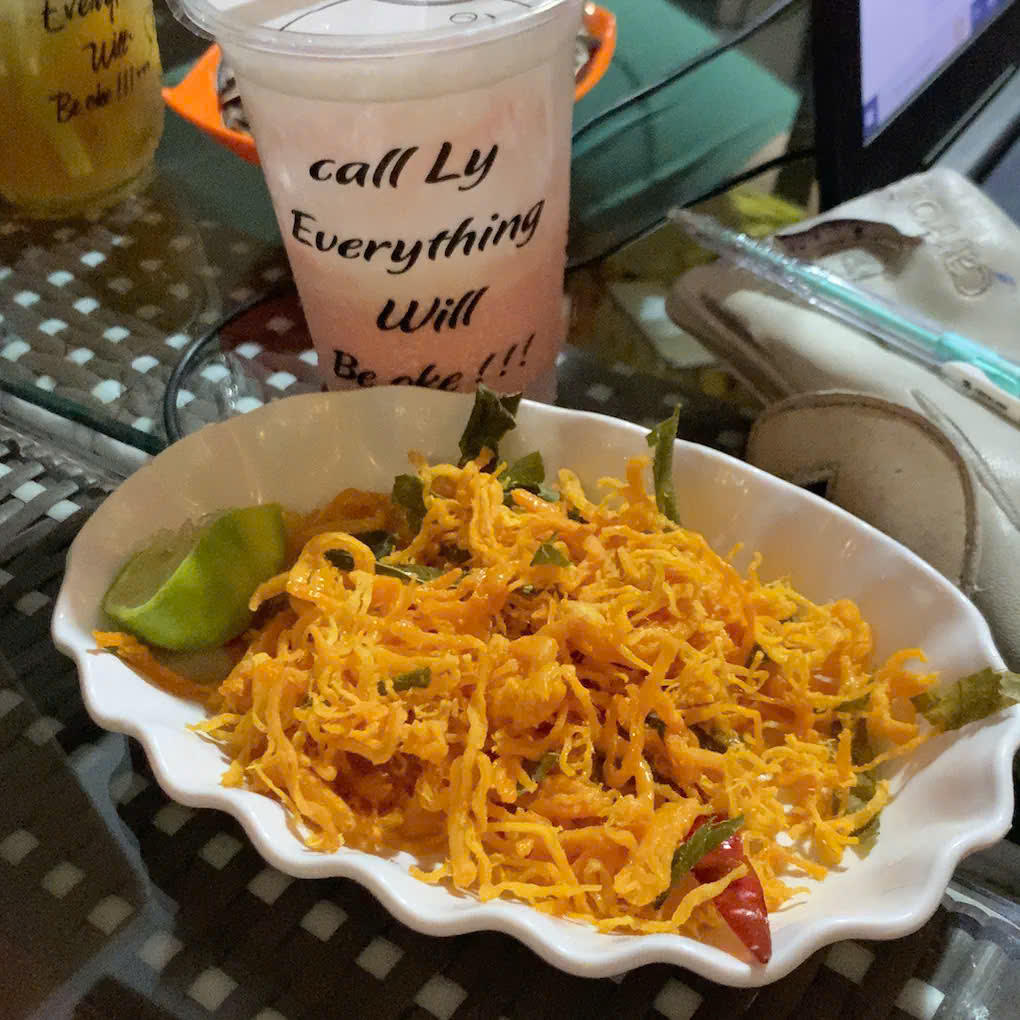 Every
Will
Be oke!!!
call Ly
Everything
Will
Be oke!!!